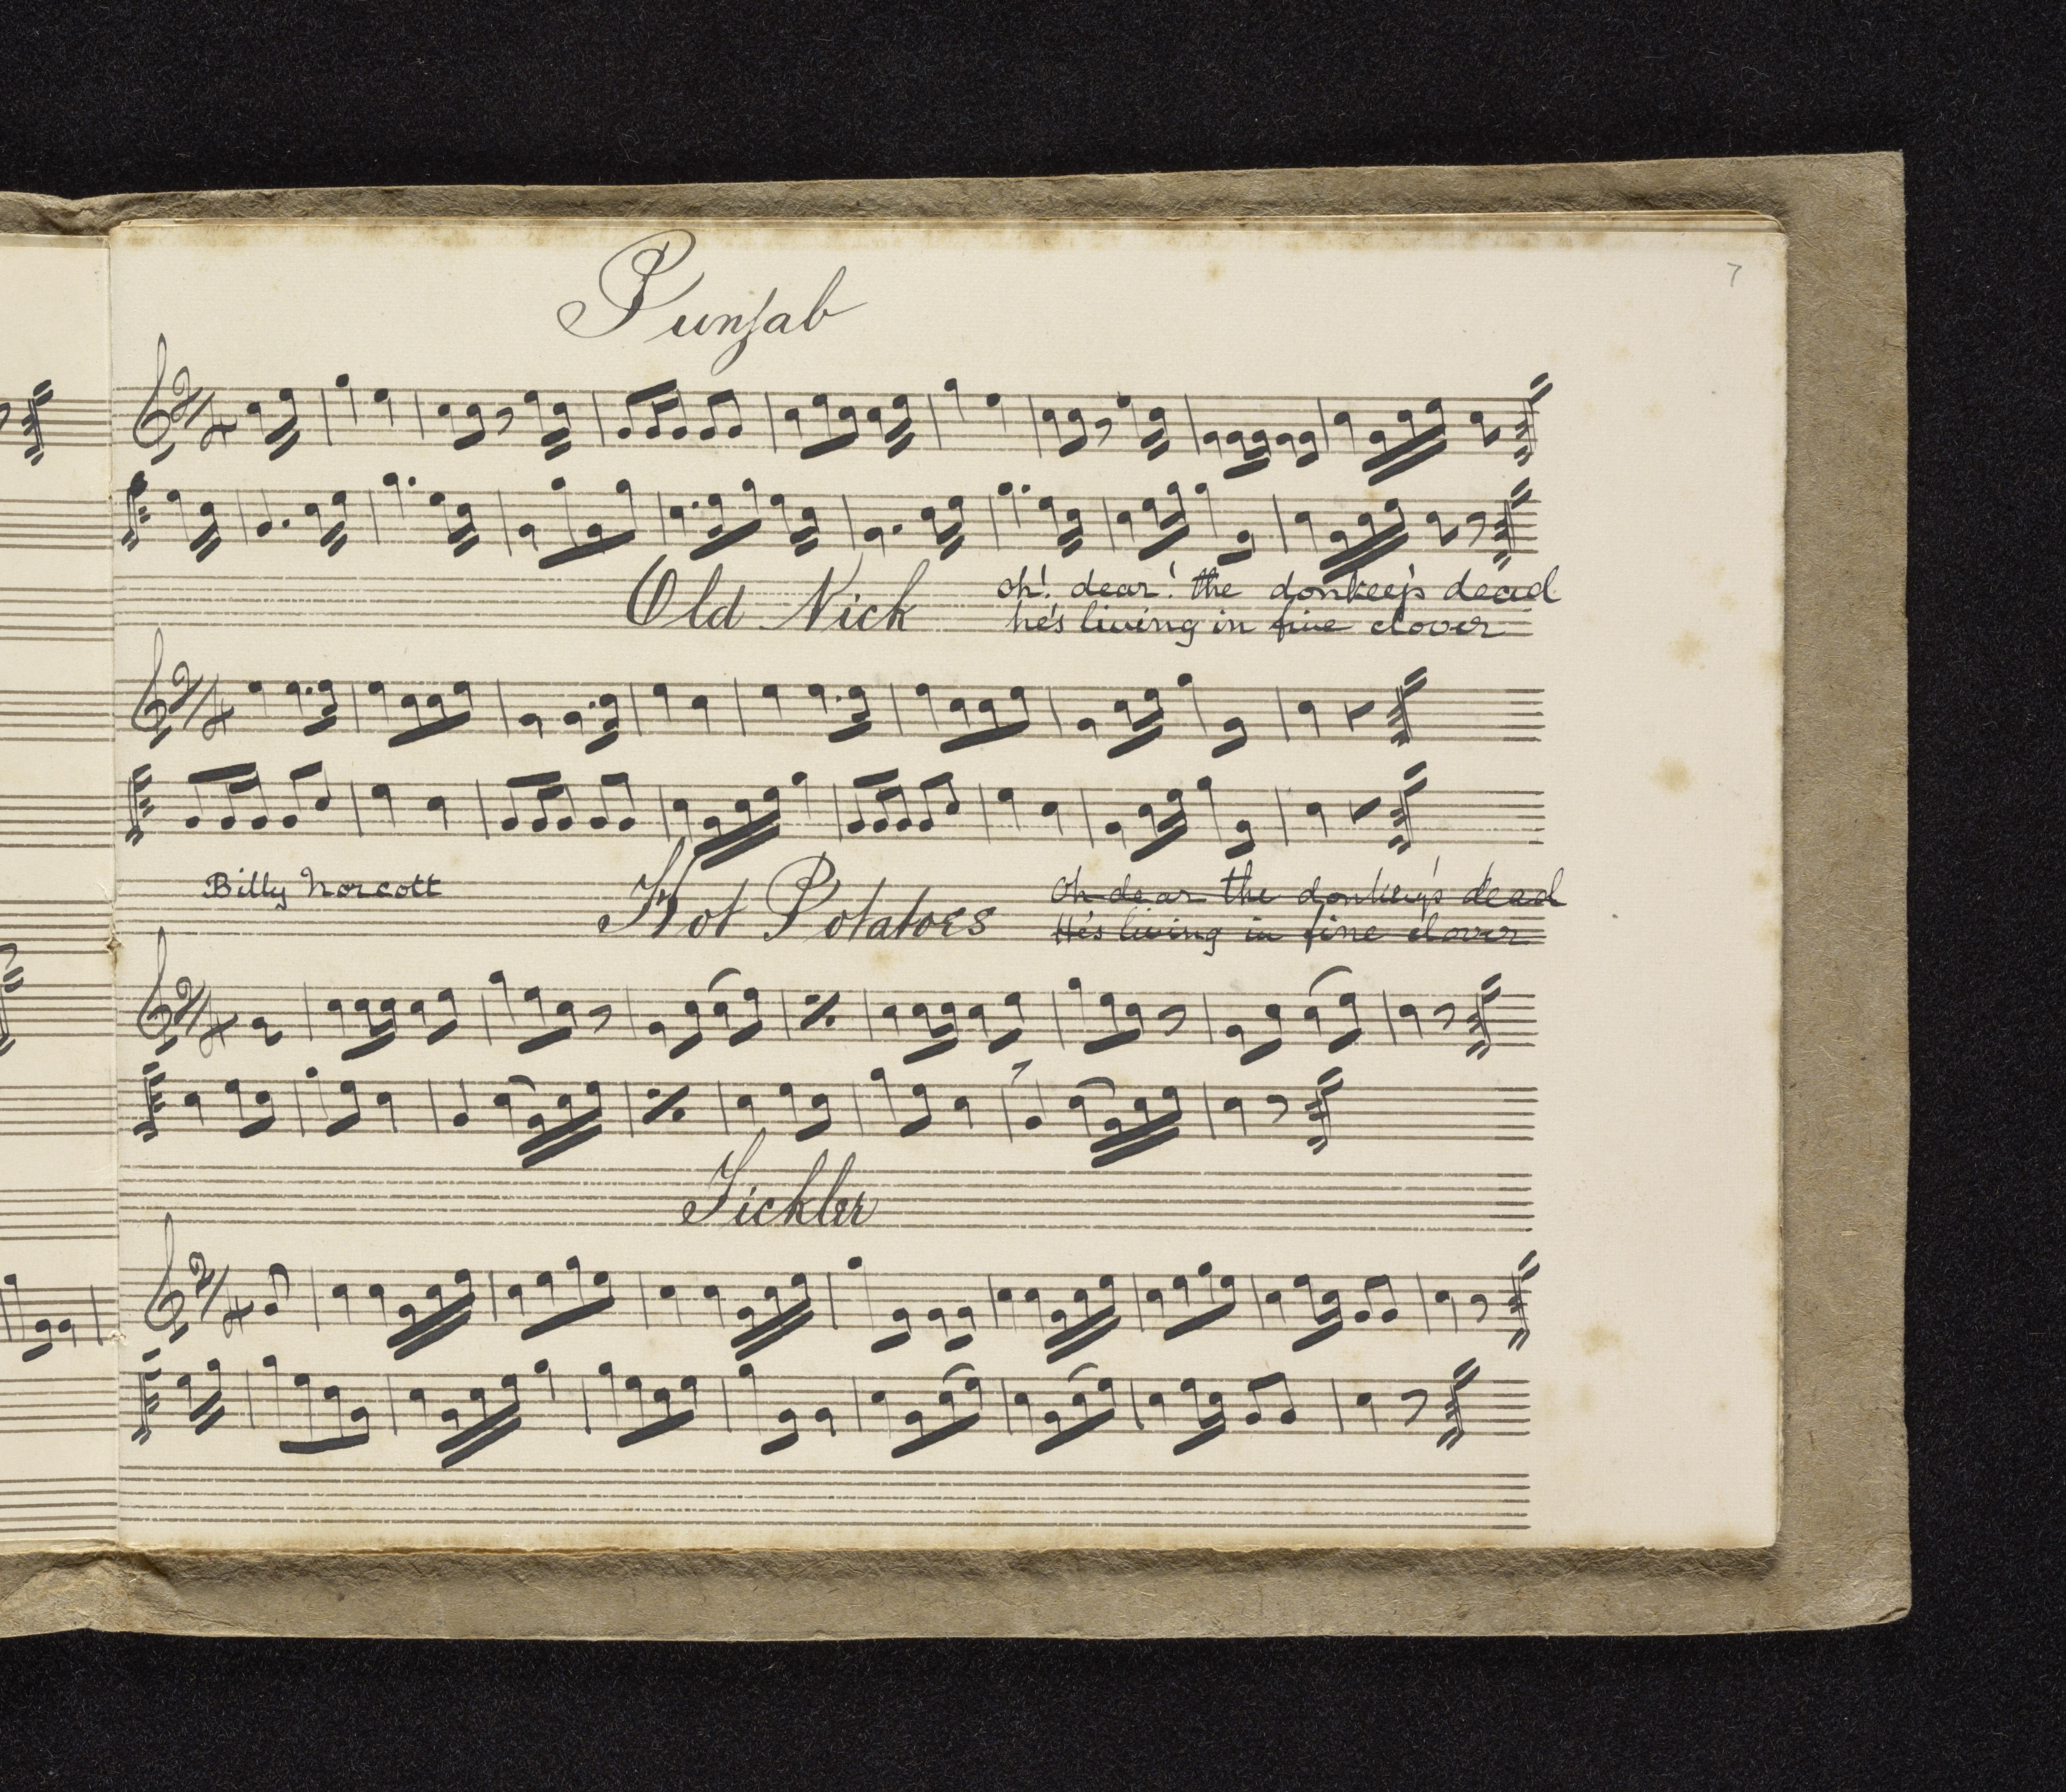 7
Punjab
Old Nick
oh! dear! the donkey's dead
he's living in fine clover
Billy Norcott
Hot Potatoes
Oh dear the donkey's dead
He's living in fine clover
Tickler